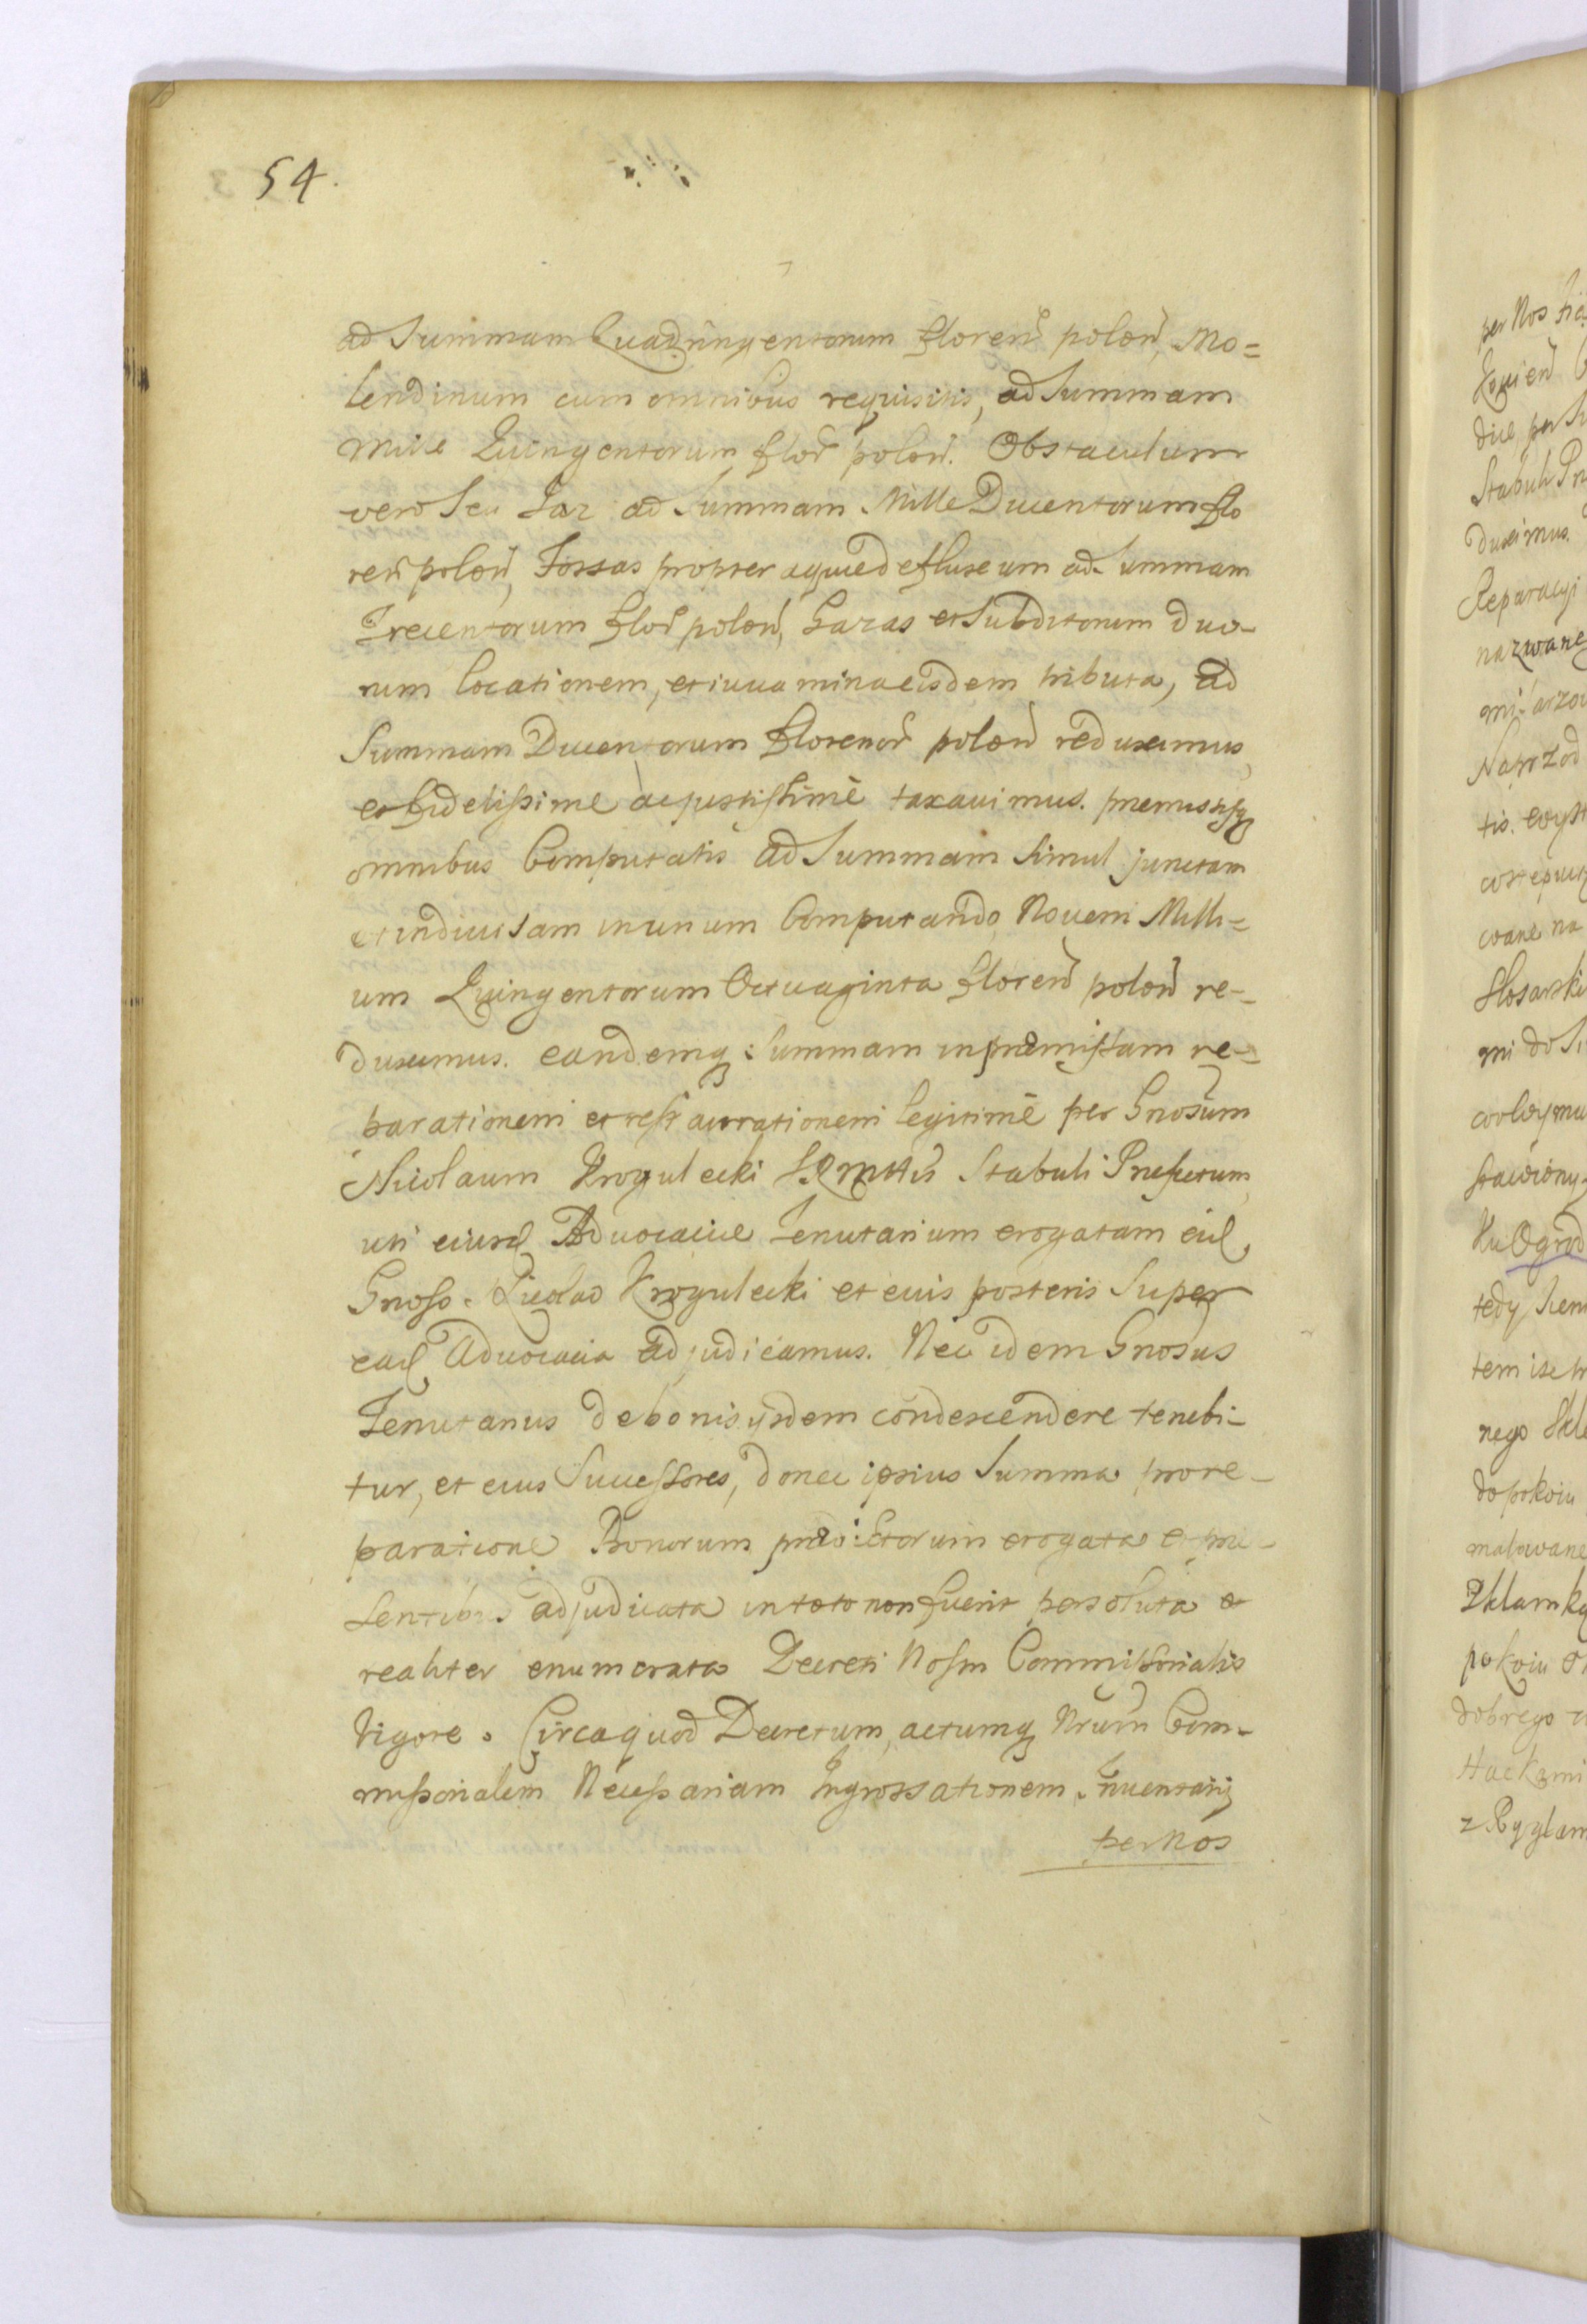 54.
ad Summam Quadringentorum floren̄ polon̄, Mo=
lendinum cum omnibus requisitis, ad Summam
Mille Quingentorum flor̄ polon̄. Obstaculum
vero Seu Jaz ad Summam Mille Ducentorum flo
ren̄ polon̄, Fossas propter aquae defluxum ad Summam
Trecentorum flor̄ polon̄, Gazas et Subditorum duo-
rum locationem, et iuuamina eisdem tributa, ad
Summam Ducentorum florenor̄ polon̄ reduximus,
et fidelissime ac justissimè taxauimus. praemissisq
omnibus Computatis ad Summam Simul junctam
et indiuisam in unum Computando, Nouem Milli=
um Quingentorum Octuaginta floren̄ polon̄ re-
duximus. eandemq Summam in praemissam re-
parationem et restaurationem legitimè per Gnosum
Nicolaum Krogulecki Stabuli Praefectum,
uti eiusd Aduocatiae Tenutarium erogatam eid
Gnoso Nicolao Krogulecki et eius posteris Super
ead Aduocatia adjudicamus. Nec idem Gnosus
Tenutarius de bonis ijsdem condescendere tenebi-
tur, et eius Successores, donec ipsius Summa pro re-
paratione Bonorum praedictorum erogata et prae-
sentibus adjudicata in toto non fuerit persoluta et
realiter enumerata Decreti Nostri Commissorialis
Vigore. Circa quod Decretum, actumq Nrum Com-
missorialem Necessariam Ingrossationem Inuentarij
per Nos
per Nos
die per
Stabuli
duximus.
Reparacyi
nazwane
Naprzod
wane na
mi do
Ogrod
tedy
tem
nego
do pokoiu
malowane
pokoiu
dobrego